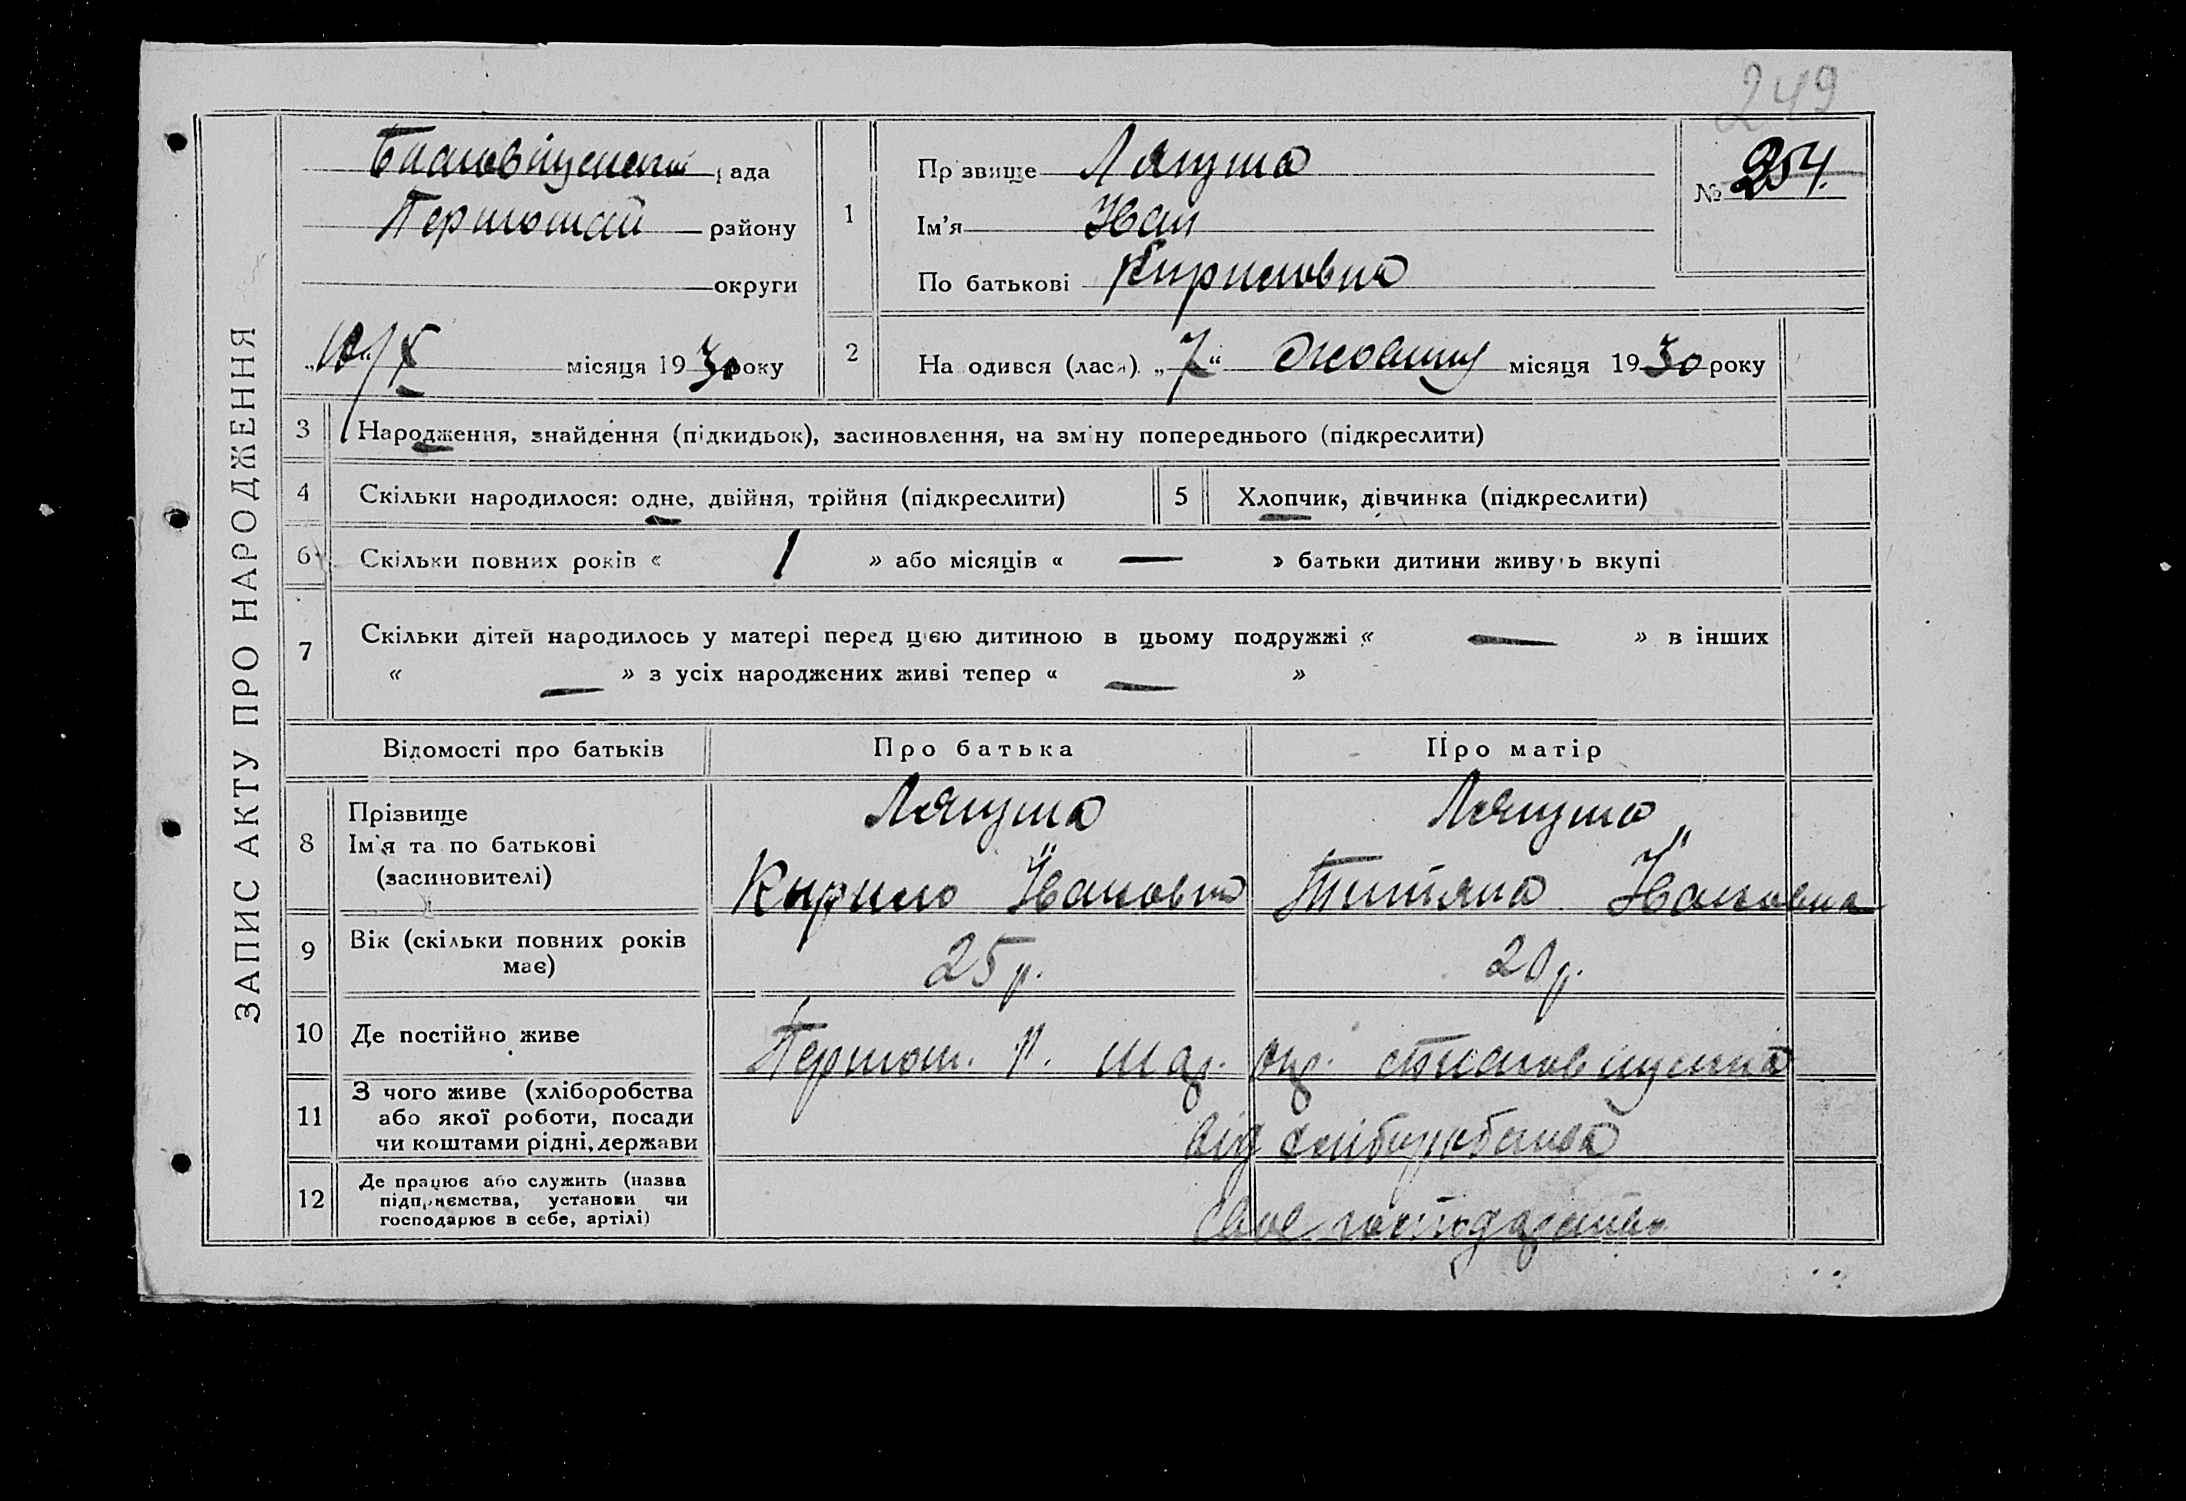 249
ЗАПИС АКТУ ПРО НАРОДЖЕННЯ
рада
району
округи
„10“ X місяця 1930 року
1
Прізвище Лягуша
Ім’я Іван
По батькові
№ 254.
2
На одився (лася) „7“ жовтня місяця 1930 року
3
Народження, знайдення (підкидьок), засиновлення, на зміну попереднього (підкреслити)
4
Скільки народилося: одне, двійня, трійня (підкреслити)
5
Хлопчик, дівчинка (підкреслити)
6
Скільки повних років « 1 » або місяців « — » батьки дитини живуть вкупі
7
Скільки дітей народилось у матері перед цією дитиною в цьому подружжі « — » в інших
« — » з усіх народжених живі тепер « — »
Відомості про батьків
Про батька
Про матір
8
Прізвище
Ім’я та по батькові
(засиновителі)
Лягуша
Кирило
Лягуша
Івановна
9
Вік (скільки повних років
має)
25 р.
20 р.
10
Де постійно живе
11
З чого живе (хліборобства
або якої роботи, посади
чи коштами рідні, держави
від
12
Де працює або служить (назва
підприємства, установи чи
господарює в себе, артілі)
своє господарство